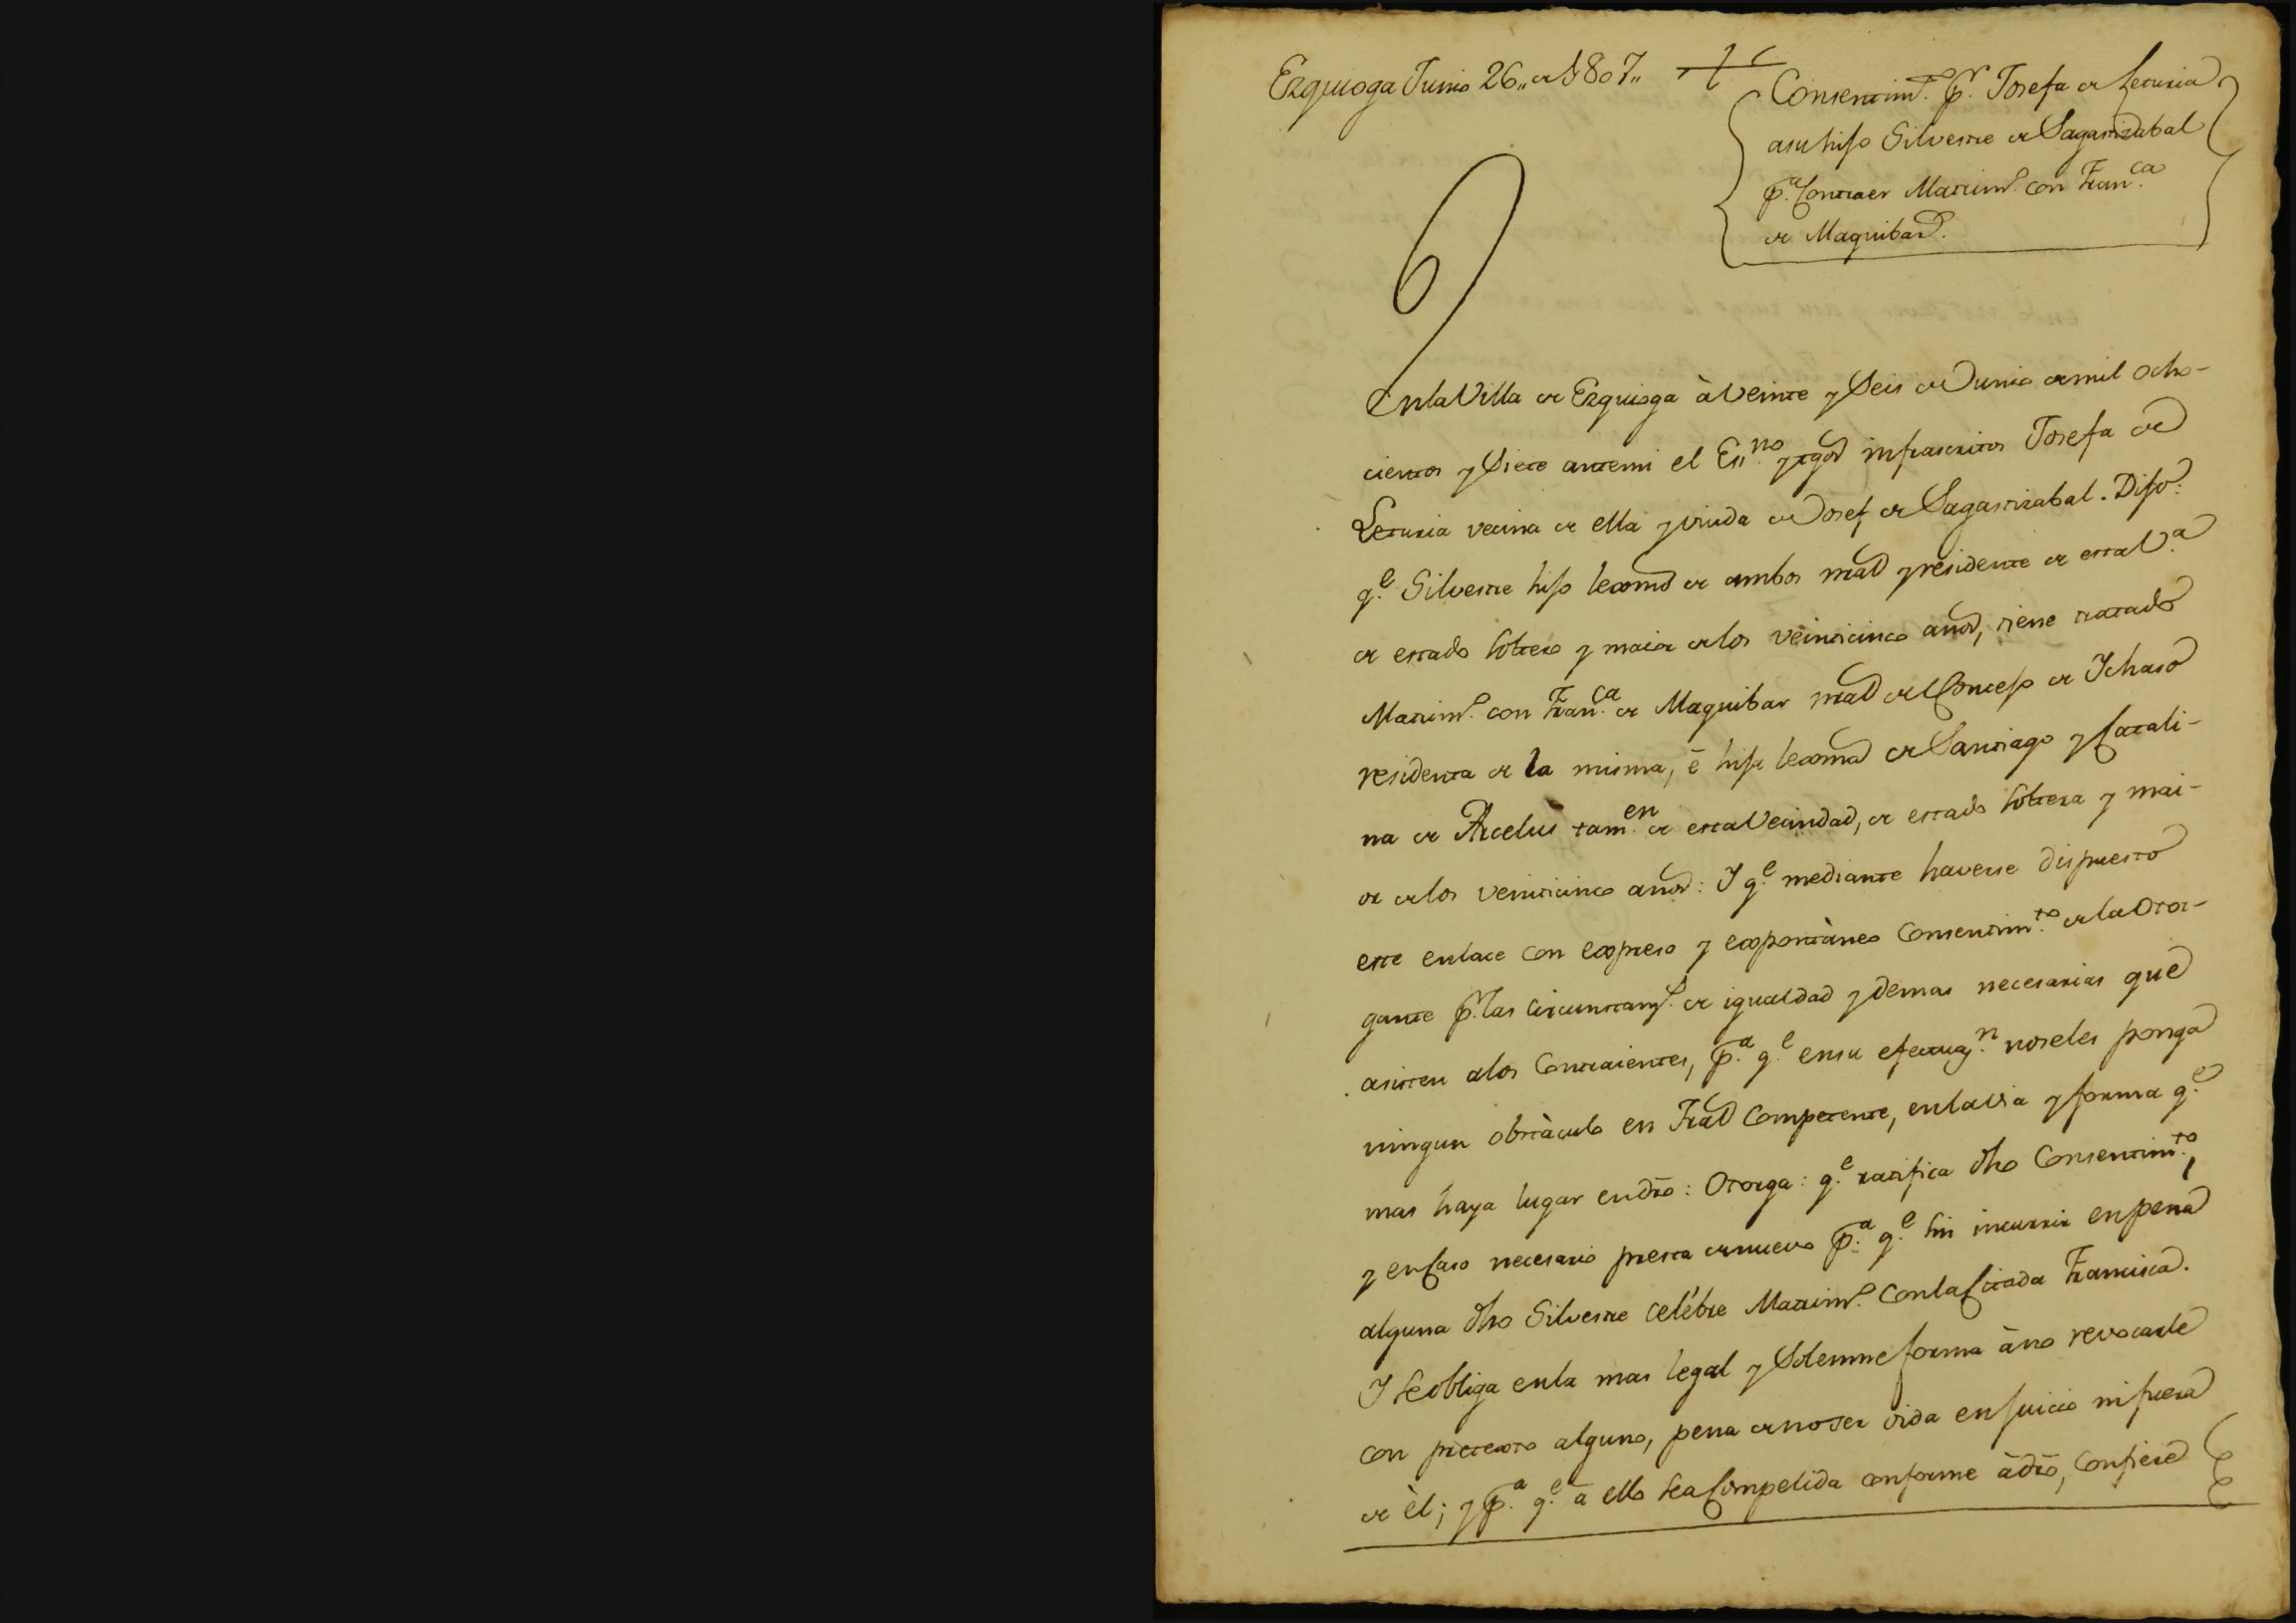 Ezquioga Junio 26,, de 1807,,
Consentim.to p.r Josefa de Leturia
asu hijo Silvestre de Sagastizabal
p.a Contraer Matrim.o con Fran.ca
de Maquibar.
En la Villa de Ezquioga à Veinte y Seis de Junio de mil ocho-
cientos y Siete ante mi el Es.no y tgos infrascritos Josefa de
Leturia vecina de ella y viuda de Josef de Sagastizabal. Dijo:
q.e Silvestre hijo lexmo de ambos nral y residente de esta V.a
de estado soltero y maior de los veinticinco años, tiene tratado
Matrim.o con Fran.ca de Maquibar nral del Concejo de Ichaso
residenta de la misma, é hija lexma de Santiago y Catali-
na de Arcelus tam.en de esta Vecindad, de estado soltera y mai-
or de los veinticinco años: I q.e mediante haverse dispuesto
este enlace con expreso y expontàneo Consentim.to de la Otor-
gante p.r las circunstans.s de igualdad y demas necesarias que
asisten alos Contraientes, p.a q.e en su efectuaz.n no se les ponga
ningun obstàculo en Tral Competente, en la via y forma q.e
mas haya lugar en dro: Otorga: q.e ratifica dho Consentim.to,
y en Caso necesario presta de nuevo p.a q.e sin incurrir en pena
alguna dho Silvestre celébre Matrim.o con la Citada Francisca.
I se obliga en la mas legal y Solemne forma à no revocarle
con pretexto alguno, pena de no ser oida en juicio ni fuera
de èl; y p.a q.e à ello sea Compelida conforme à dro, Confiere